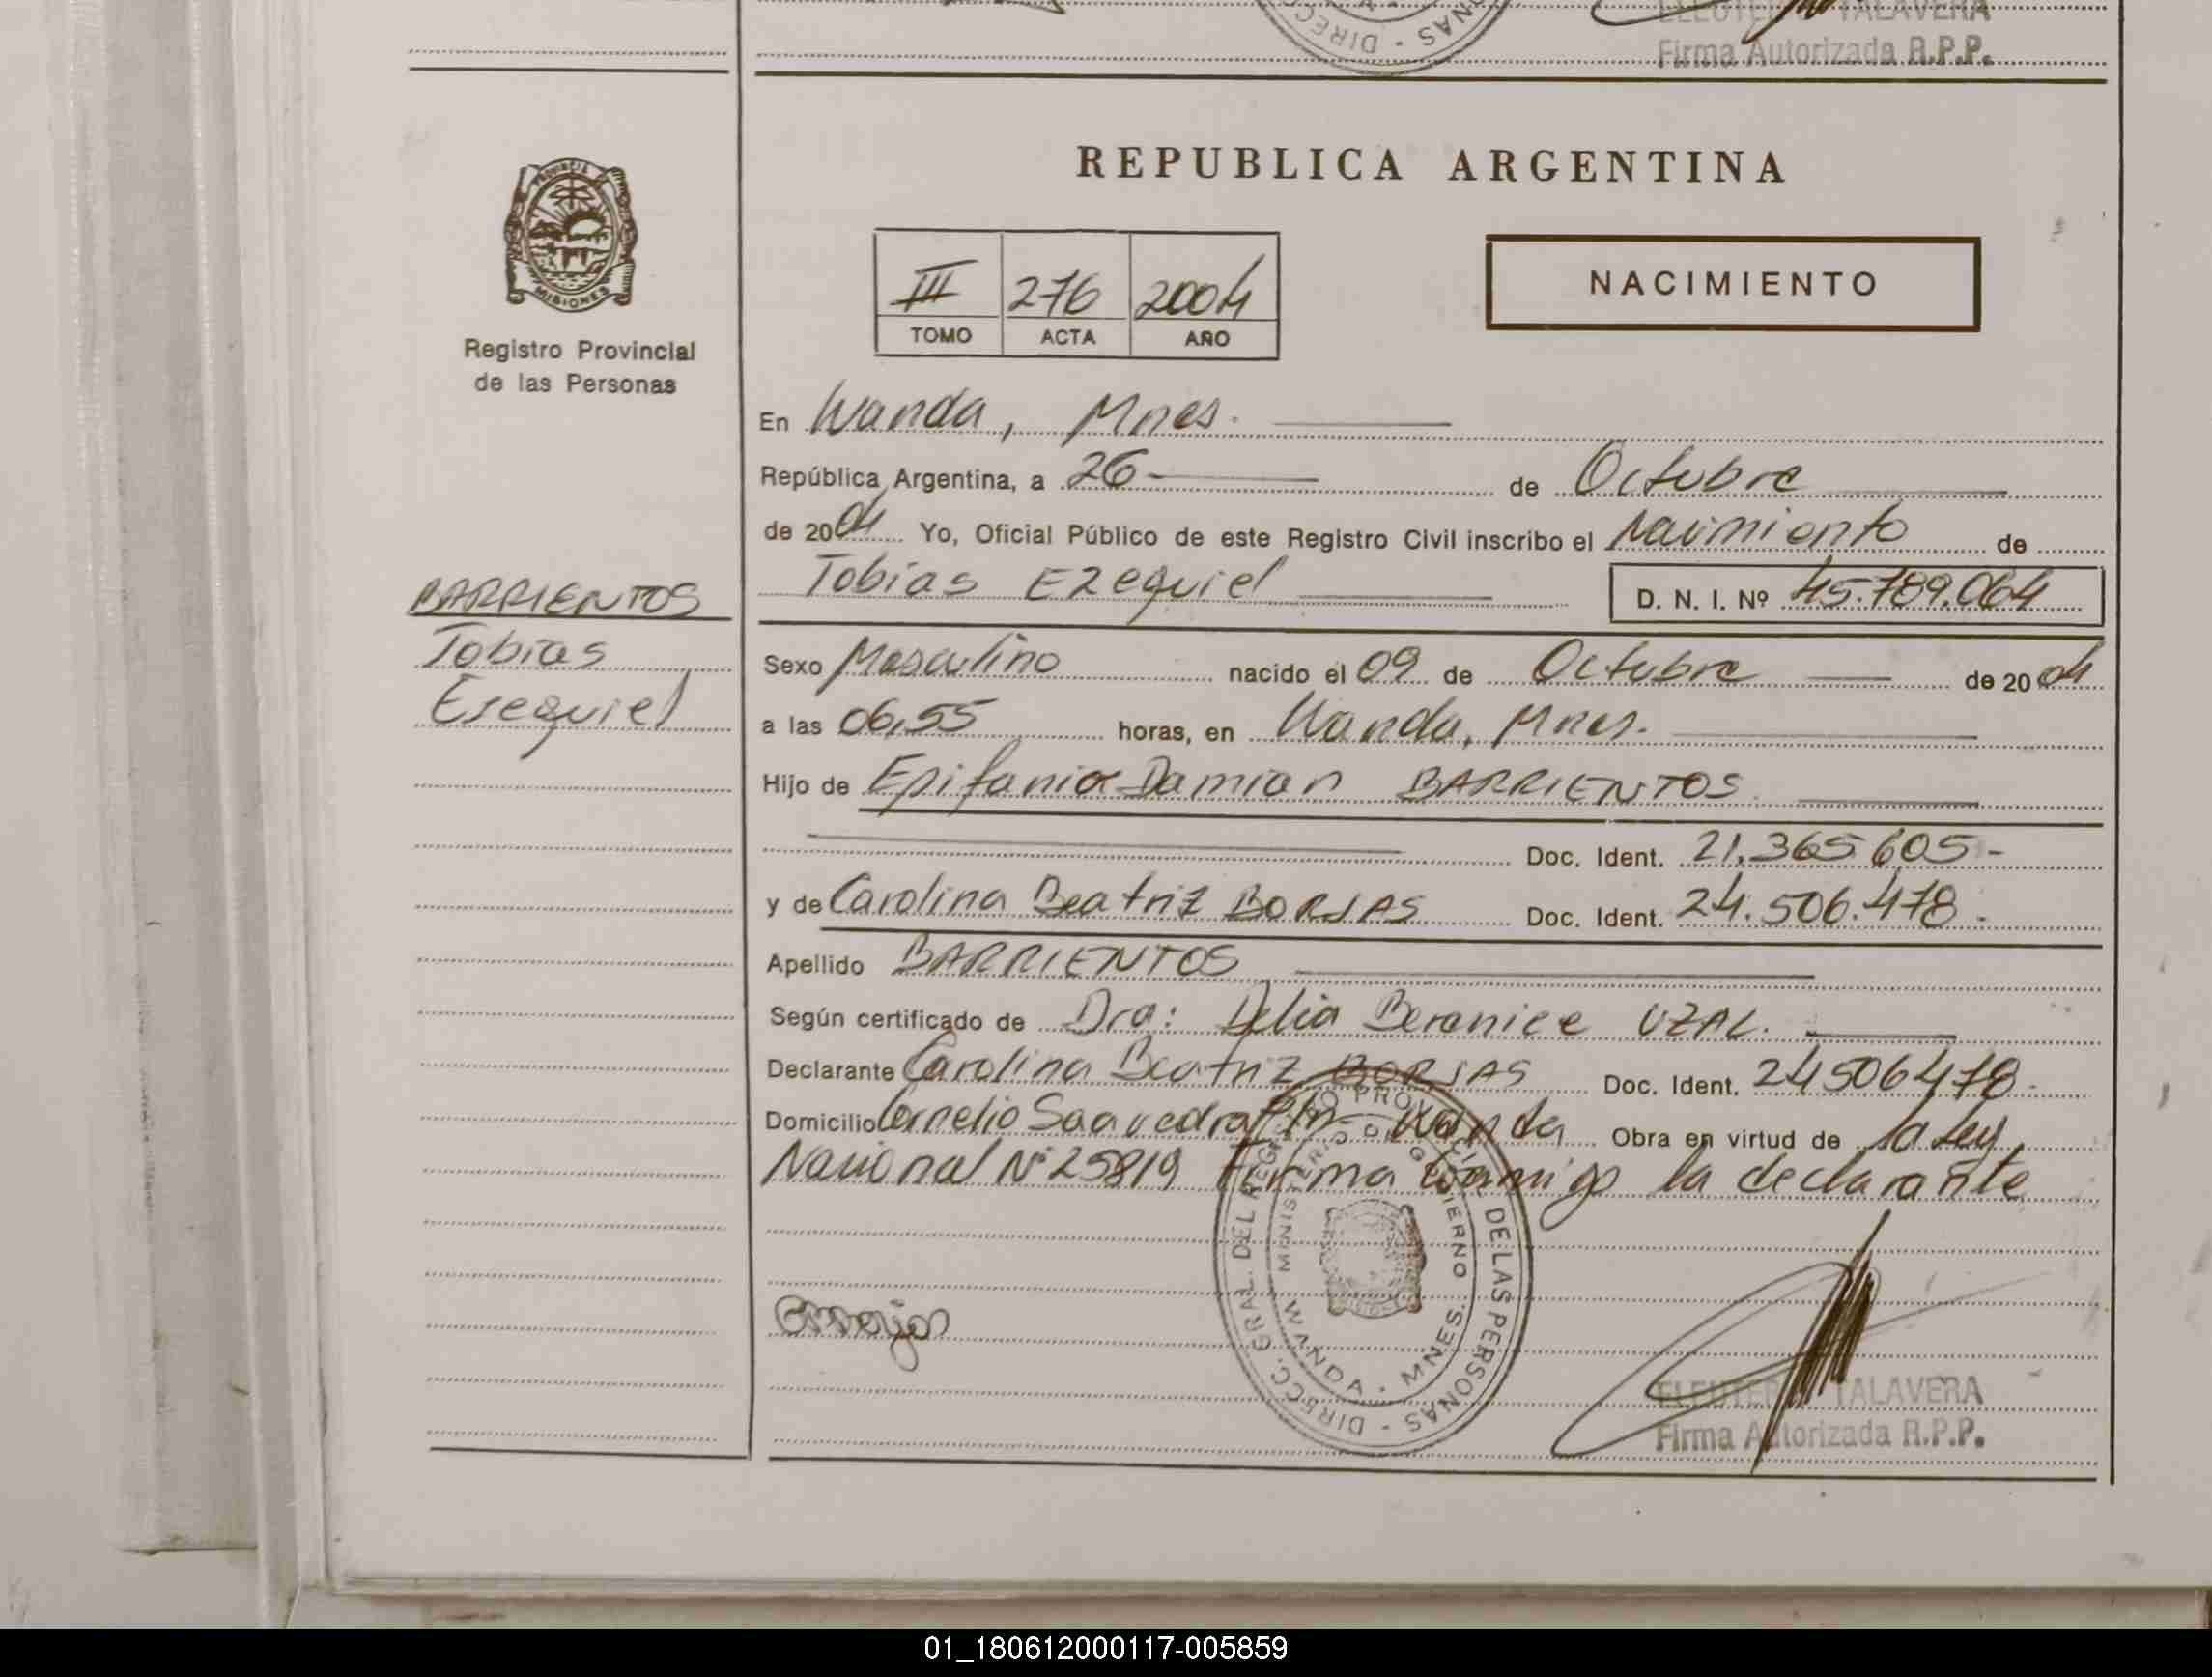 ELEUTERIO TALAVERA
Firma Autorizada R.P.P.
PROVINCIA DE
MISIONES
Registro Provincial
de las Personas
REPUBLICA ARGENTINA
III 276 2004
TOMO ACTA AÑO
NACIMIENTO
En Wanda, Mnes.
República Argentina, a 26 de Octubre
de 2004 Yo, Oficial Público de este Registro Civil inscribo el Nacimiento de
Tobias Ezequiel D. N. I. Nº 45.789.064
BARRIENTOS
Tobias
Esequiel
Sexo Masculino nacido el 09 de Octubre de 2004
a las 06,55 horas, en Wanda, Mnes.
Hijo de Epifanio Damian BARRIENTOS
Doc. Ident. 21.365.605-
y de Carolina Beatriz BORJAS Doc. Ident. 24.506.478.
Apellido BARRIENTOS
Según certificado de Dra: Delia Berenice UZAL.
Declarante Carolina Beatriz BORJAS Doc. Ident. 24506478-
Domicilio Cornelio Saavedra Wanda Obra en virtud de la Ley
Nacional Nº 25819 Firma conmigo la declarante
DIRECC. GRAL. DEL REGISTRO PROVINCIAL DE LAS PERSONAS
MINISTERIO GOBIERNO
WANDA - MNES.
ELEUTERIO TALAVERA
Firma Autorizada R.P.P.
01_180612000117-005859